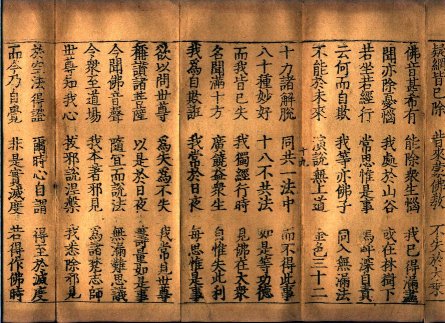 疑網皆已除 昔來蒙佛教 不失於大乘
佛音甚希有 能除衆生惱 我已得漏盡
聞亦除憂惱 我處於山谷 或在林樹下
若坐若經行 常思惟是事 嗚呼深自責
云何而自欺 我等亦佛子 同入無漏法
不能於未來 演說無上道 金色三十二
十九
十力諸解脫 同共一法中 而不得此事
八十種妙好 十八不共法 如是等功德
而我皆已失 我獨經行時 見佛在大衆
名聞滿十方 廣饒益衆生 自惟失此利
我為自欺誑 我常於日夜 每思惟是事
欲以問世尊 為失為不失 我常見世尊
稱讚諸菩薩 以是於日夜 籌量如是事
今聞佛音聲 隨宜而說法 無漏難思議
令衆至道場 我本著邪見 為諸梵志師
世尊知我心 拔邪說涅槃 我悉除邪見
於空法得證 爾時心自謂 得至於滅度
而今乃自覺 非是實滅度 若得作佛時